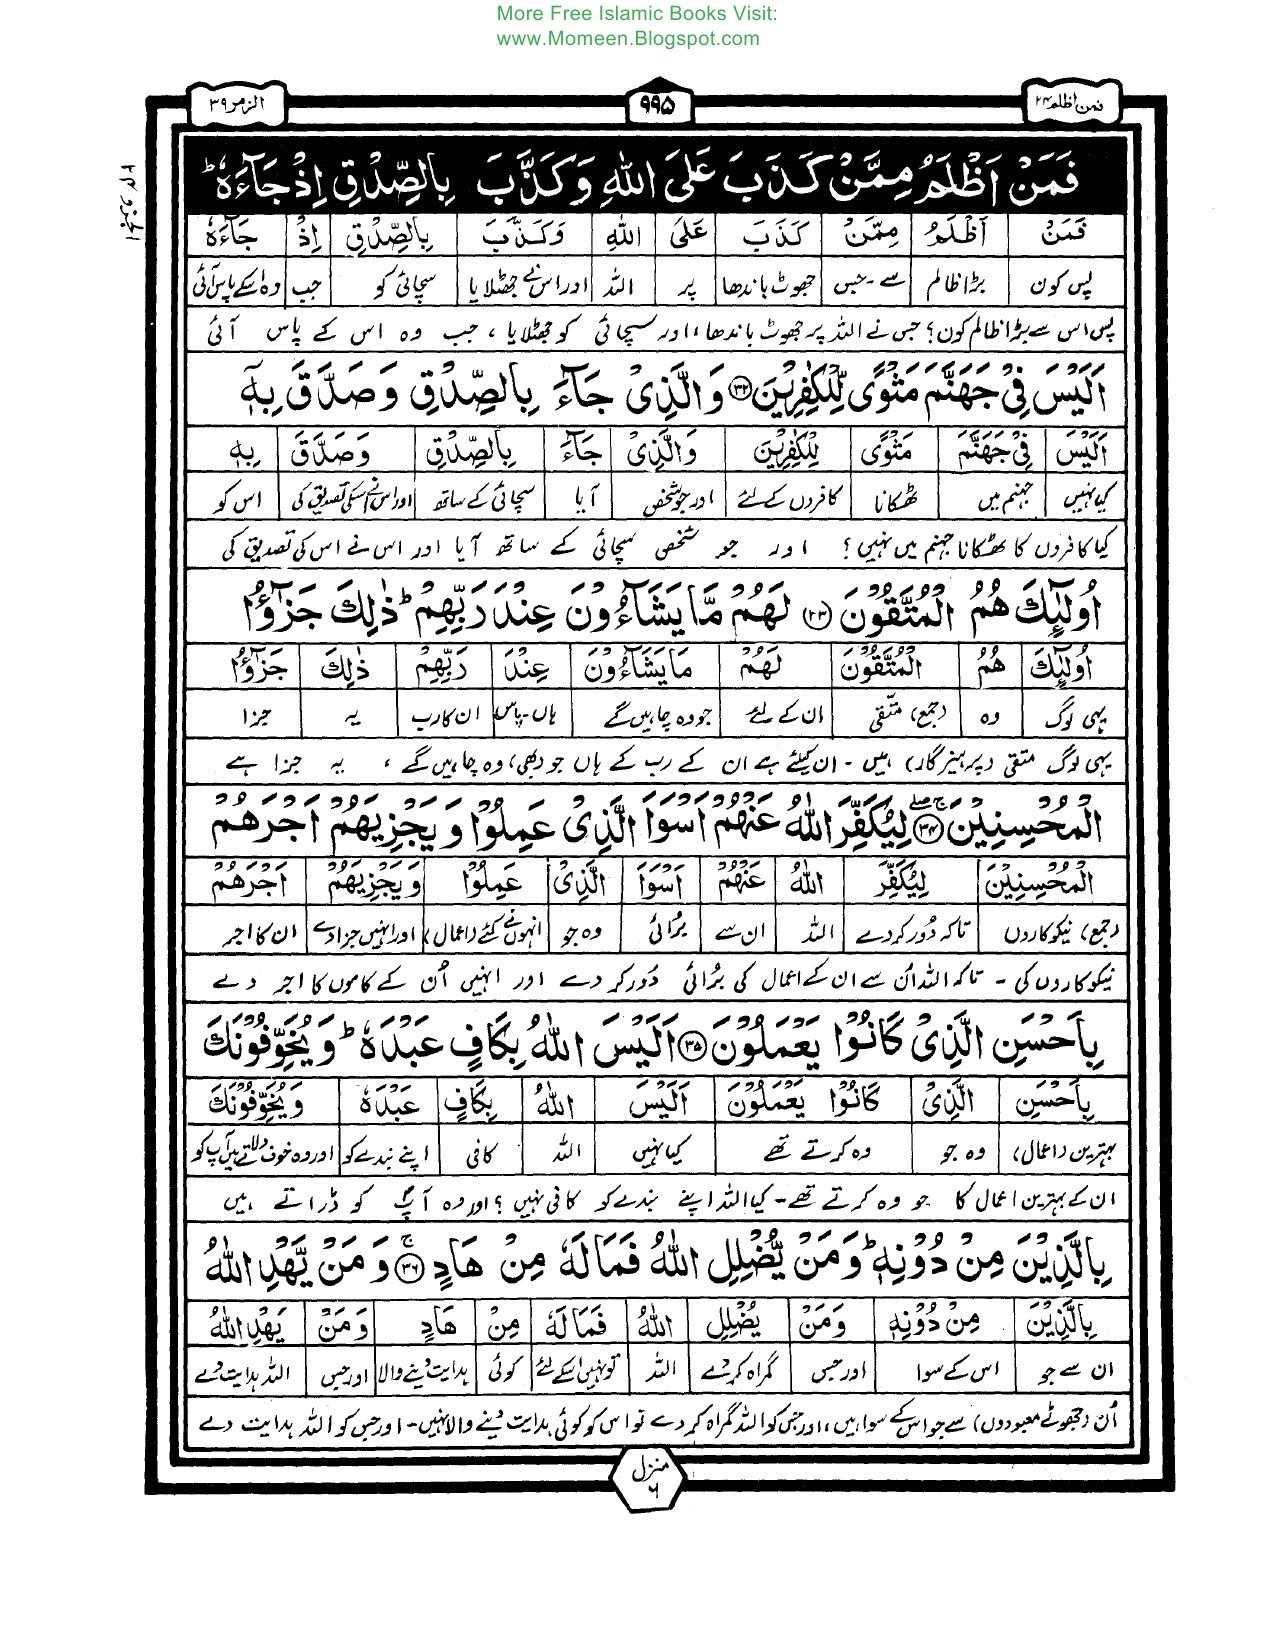 More Free Islamic Books Visit:
www.Momeen.Blogspot.com
فمن اظلم ۲۴
۹۹۵
الزمر ۳۹
الجزء ۲۴
فَمَنْ اَظْلَمُ مِمَّنْ كَذَبَ عَلَى اللّٰهِ وَكَذَّبَ بِالصِّدْقِ اِذْ جَآءَهٗ ؕ
فَمَنْ اَظْلَمُ مِمَّنْ كَذَبَ عَلَى اللّٰهِ وَكَذَّبَ بِالصِّدْقِ اِذْ جَآءَهٗ
پس کون بڑا ظالم سے-جس جھوٹ باندھا پر اللہ اور اس نے جھٹلایا سچائی کو جب وہ اسکے پاس آئی
پس اس سے بڑا ظالم کون؟ جس نے اللہ پر جھوٹ باندھا، اور سچائی کو جھٹلایا، جب وہ اس کے پاس آئی
اَلَيْسَ فِيْ جَهَنَّمَ مَثْوًى لِّلْكٰفِرِيْنَ ﴿۳۲﴾ وَالَّذِيْ جَآءَ بِالصِّدْقِ وَصَدَّقَ بِهٖٓ
اَلَيْسَ فِيْ جَهَنَّمَ مَثْوًى لِلْكٰفِرِيْنَ وَالَّذِيْ جَآءَ بِالصِّدْقِ وَصَدَّقَ بِهٖٓ
کیا نہیں جہنم میں ٹھکانا کافروں کے لئے اور جو شخص آیا سچائی کے ساتھ اور اس نے اسکی تصدیق کی اس کو
کیا کافروں کا ٹھکانا جہنم میں نہیں؟ اور جو شخص سچائی کے ساتھ آیا اور اس نے اس کی تصدیق کی
اُولٰٓئِكَ هُمُ الْمُتَّقُوْنَ ﴿۳۳﴾ لَهُمْ مَّا يَشَآءُوْنَ عِنْدَ رَبِّهِمْ ؕ ذٰلِكَ جَزٰٓؤُا
اُولٰٓئِكَ هُمُ الْمُتَّقُوْنَ لَهُمْ مَا يَشَآءُوْنَ عِنْدَ رَبِّهِمْ ذٰلِكَ جَزٰٓؤُا
یہی لوگ وہ (جمع) متقی ان کے لئے جو وہ چاہیں گے ہاں-پاس ان کا رب یہ جزا
یہی لوگ متقی (پرہیزگار) ہیں - ان کیلئے ہے ان کے رب کے ہاں جو (بھی) وہ چاہیں گے ، یہ جزا ہے
الْمُحْسِنِيْنَ ﴿۳۴﴾ لِيُكَفِّرَ اللّٰهُ عَنْهُمْ اَسْوَاَ الَّذِيْ عَمِلُوْا وَيَجْزِيَهُمْ اَجْرَهُمْ
الْمُحْسِنِيْنَ لِيُكَفِّرَ اللّٰهُ عَنْهُمْ اَسْوَاَ الَّذِيْ عَمِلُوْا وَيَجْزِيَهُمْ اَجْرَهُمْ
(جمع) نیکوکاروں تاکہ دُور کر دے اللہ ان سے بُرائی وہ جو انہوں نے کئے (اعمال) اور انہیں جزا دے ان کا اجر
نیکوکاروں کی - تاکہ اللہ اُن سے ان کے اعمال کی بُرائی دُور کر دے اور انہیں اُن کے کاموں کا اجر دے
بِاَحْسَنِ الَّذِيْ كَانُوْا يَعْمَلُوْنَ ﴿۳۵﴾ اَلَيْسَ اللّٰهُ بِكَافٍ عَبْدَهٗ ؕ وَيُخَوِّفُوْنَكَ
بِاَحْسَنِ الَّذِيْ كَانُوْا يَعْمَلُوْنَ اَلَيْسَ اللّٰهُ بِكَافٍ عَبْدَهٗ وَيُخَوِّفُوْنَكَ
بہترین (اعمال) وہ جو وہ کرتے تھے کیا نہیں اللہ کافی اپنے بندے کو اور وہ خوف دلاتے ہیں آپ کو
ان کے بہترین اعمال کا جو وہ کرتے تھے - کیا اللہ اپنے بندے کو کافی نہیں؟ اور وہ آپ کو ڈراتے ہیں
بِالَّذِيْنَ مِنْ دُوْنِهٖ ؕ وَمَنْ يُّضْلِلِ اللّٰهُ فَمَا لَهٗ مِنْ هَادٍ ﴿۳۶﴾ وَمَنْ يَّهْدِ اللّٰهُ
بِالَّذِيْنَ مِنْ دُوْنِهٖ وَمَنْ يُضْلِلِ اللّٰهُ فَمَا لَهٗ مِنْ هَادٍ وَمَنْ يَهْدِ اللّٰهُ
ان سے جو اس کے سوا اور جس گمراہ کر دے اللہ تو نہیں اسکے لئے کوئی ہدایت دینے والا اور جس اللہ ہدایت دے
اُن (جھوٹے معبودوں) سے جو اس کے سوا ہیں، اور جس کو اللہ گمراہ کر دے تو اس کو کوئی ہدایت دینے والا نہیں - اور جس کو اللہ ہدایت دے
منزل
۶